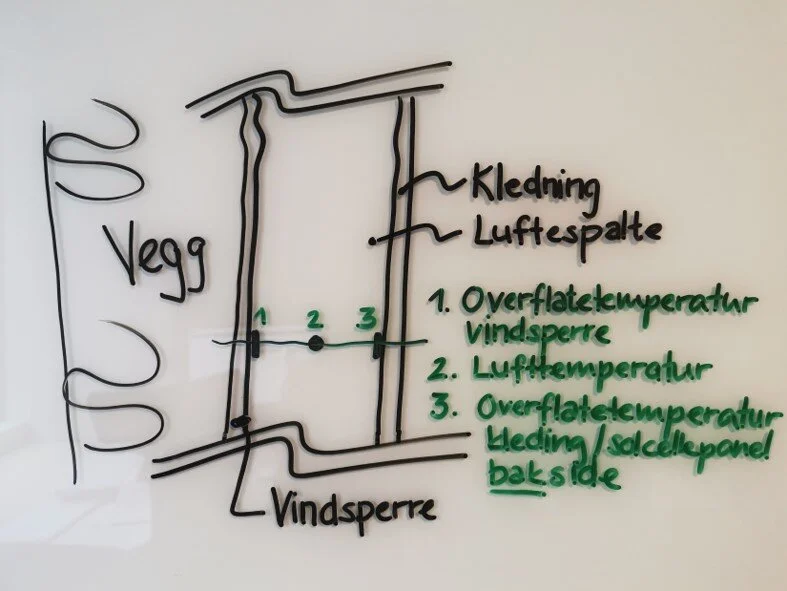 Kledning
Luftespalte
Vegg
1 2 3
1. Overflatetemperatur
vindsperre
2. Lufttemperatur
3. Overflatetemperatur
kleding/solcellepanel
bakside
Vindsperre